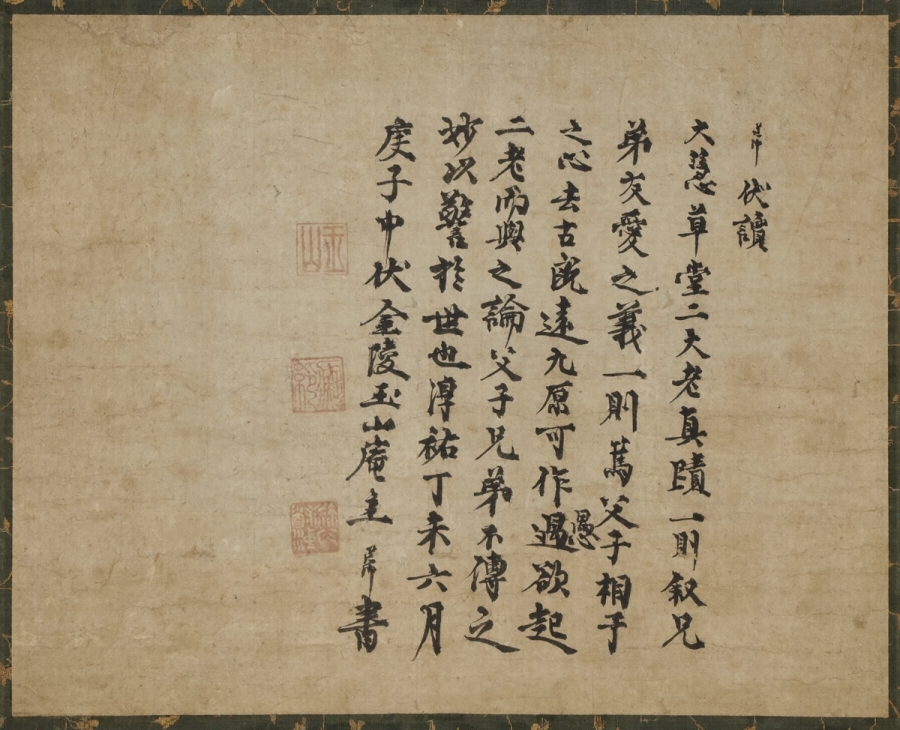 伏讀
大慧草堂二大老真蹟一則叙兄
弟友愛之義一則篤父子相予
之心去古既遠九原可作愚過欲起
二老而與之論父子兄弟不傳之
妙以警於世也淳祐丁未六月
庚子中伏金陵玉山庵主書
玉山